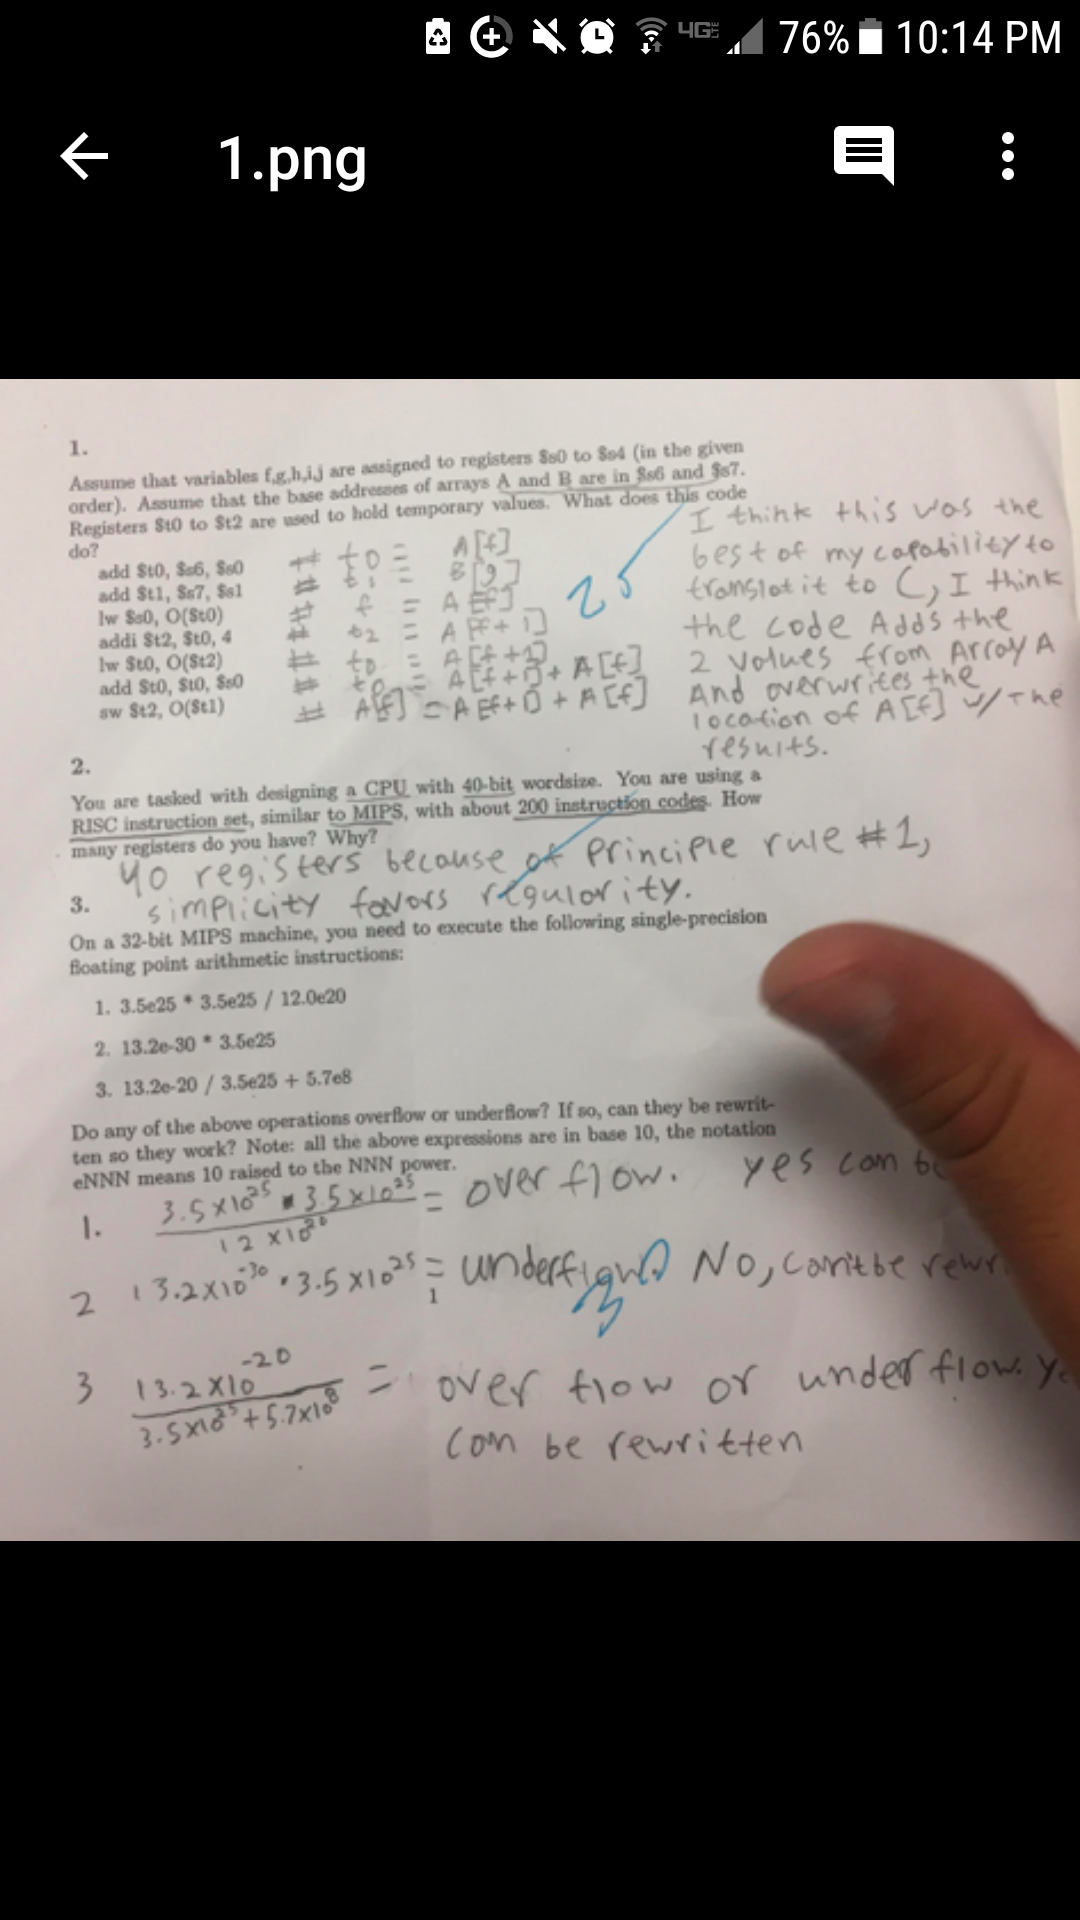 4G LTE 76% 10:14 PM
1.png
1.
Assume that variables f,g,h,i,j are assigned to registers $s0 to $s4 (in the given
order). Assume that the base addresses of arrays A and B are in $s6 and $s7.
Registers $t0 to $t2 are used to hold temporary values. What does this code
do?
add $t0, $s6, $s0 # t0 = A[f]
add $t1, $s7, $s1 # t1 = B[g]
lw $s0, O($t0) # f = A[f]
addi $t2, $t0, 4 # t2 = A[f+1]
lw $t0, O($t2) # t0 = A[f+1]
add $t0, $t0, $s0 # t0 = A[f+1] + A[f]
sw $t2, O($t1) # A[f] = A[f+1] + A[f]
25
I think this was the
best of my capability to
translat it to C, I think
the code Adds the
2 values from Array A
And overwrites the
location of A[f] w/ The
results.
2.
You are tasked with designing a CPU with 40-bit wordsize. You are using a
RISC instruction set, similar to MIPS, with about 200 instruction codes. How
many registers do you have? Why?
40 registers because of Principle rule #1,
simplicity favors regularity.
3.
On a 32-bit MIPS machine, you need to execute the following single-precision
floating point arithmetic instructions:
1. 3.5e25 * 3.5e25 / 12.0e20
2. 13.2e-30 * 3.5e25
3. 13.2e-20 / 3.5e25 + 5.7e8
Do any of the above operations overflow or underflow? If so, can they be rewrit-
ten so they work? Note: all the above expressions are in base 10, the notation
eNNN means 10 raised to the NNN power.
1. 3.5x10^25 * 3.5x10^25 / 12 x10^20 = over flow. yes can be
2 13.2x10^-30 · 3.5x10^25 = underflow No, can't be
3
1
3 13.2x10^-20 / 3.5x10^25 + 5.7x10^8 = over flow or under flow.
can be rewritten